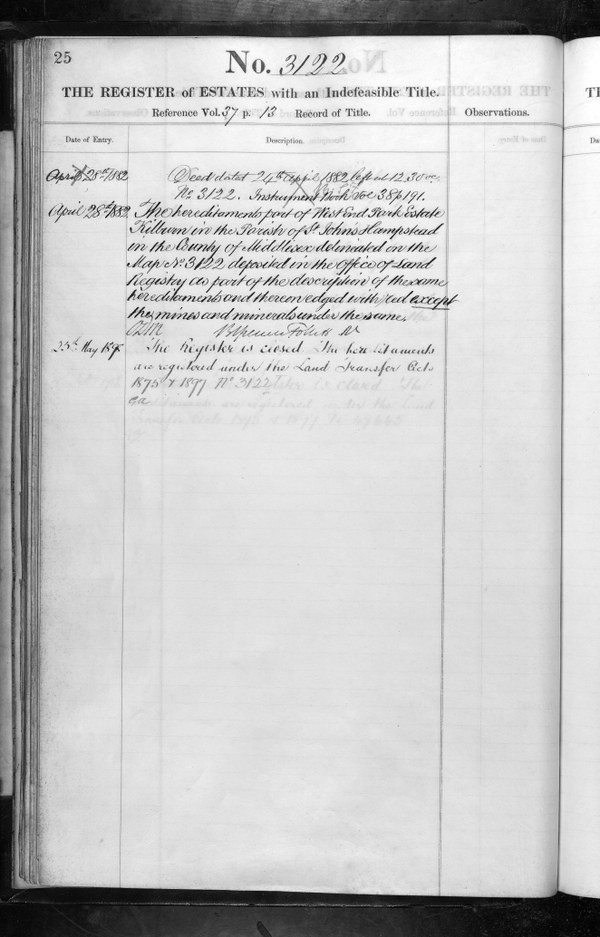 25
No. 3122
THE REGISTER of ESTATES with an Indefeasible Title.
Reference Vol. 37 p. 13 Record of Title.
Observations.
Date of Entry.
Description.
April 28th 1882
Deed dated 24th April 1882 left at 12.30
No 3122. Instrument Book Vol 38 p 191.
April 28th 1882
The hereditaments part of West End Park Estate
Kilburn in the Parish of St. John's Hampstead
in the County of Middlesex deliniated on the
Map No 3122 deposited in the Office of Land
Registry as part of the description of the same
hereditaments and thereon edged with red except
the mines and minerals under the same.
25th May
The Register is closed The hereditaments
are registered under the Land Transfer Acts
1875 & 1897 No 3122